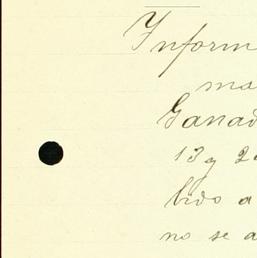 Inform
ma
Ganad
13 y 2
bido a
no se a